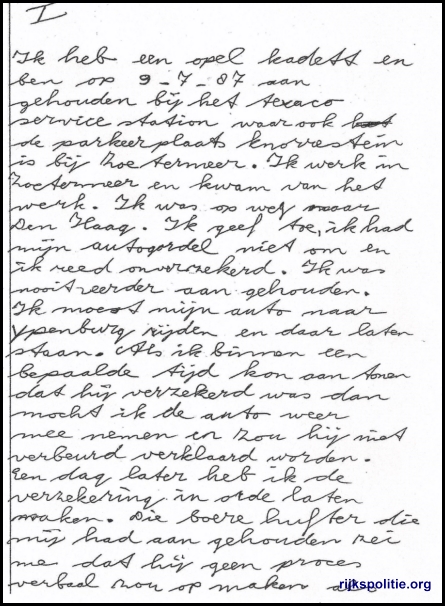 I
Ik heb een opel kadett en
ben op 9-7-87 aan
gehouden bij het texaco
service station waar ook
de parkeerplaats knorrestein
is bij Zoetermeer. Ik werk in
Zoetermeer en kwam van het
werk. Ik was op weg naar
Den Haag. Ik geef toe, ik had
mijn autogordel niet om en
ik reed onverzekerd. Ik was
nooit eerder aan gehouden.
Ik moest mijn auto naar
Ypenburg rijden en daar laten
staan. Als ik binnen een
bepaalde tijd kon aan tonen
dat hij verzekerd was dan
mocht ik de auto weer
mee nemen en zou hij niet
verbeurd verklaard worden.
Een dag later heb ik de
verzekering in orde laten
maken. Die boere hufter die
mij had aan gehouden zei
me dat hij geen proces
verbaal zou op maken als
rijkspolitie.org